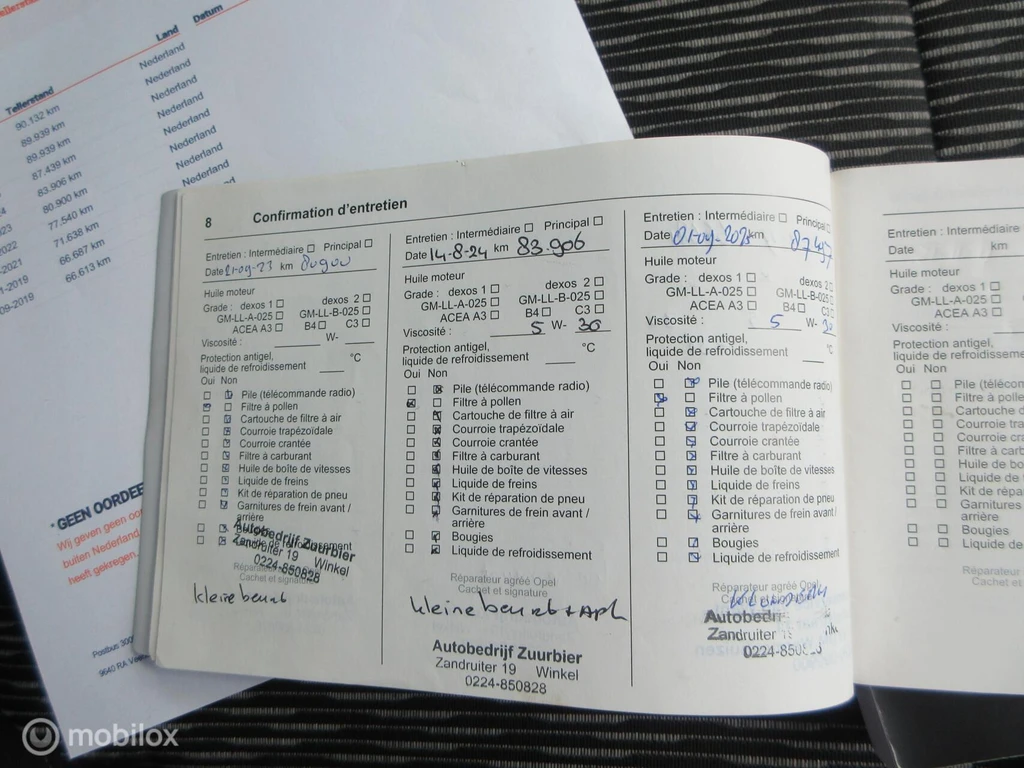 Tellerstand
Land
Datum
90.132 km
Nederland
89.939 km
Nederland
89.939 km
Nederland
87.439 km
Nederland
83.906 km
Nederland
80.900 km
Nederland
77.540 km
Nederland
71.638 km
Nederland
66.687 km
Nederland
66.613 km
2022
-2021
1-2019
09-2019
* GEEN OORDEE
Wij geven geen oor
buiten Nederland.
heeft gekregen.
Postbus 300
9640 RA Vee
8
Confirmation d'entretien
Entretien : Intermédiaire Principal
Date 21-09-23 km 80900
Huile moteur
Grade : dexos 1 dexos 2
GM-LL-A-025 GM-LL-B-025
ACEA A3 B4 C3
Viscosité : W-
Protection antigel,
liquide de refroidissement °C
Oui Non
Pile (télécommande radio)
Filtre à pollen
Cartouche de filtre à air
Courroie trapézoïdale
Courroie crantée
Filtre à carburant
Huile de boîte de vitesses
Liquide de freins
Kit de réparation de pneu
Garnitures de frein avant /
arrière
Autobedrijf Zuurbier
Zandruiter 19 Winkel
0224-850828
kleine beurt
Entretien : Intermédiaire Principal
Date 14-8-24 km 83.906
Huile moteur
Grade : dexos 1 dexos 2
GM-LL-A-025 GM-LL-B-025
ACEA A3 B4 C3
Viscosité : 5 W- 30
Protection antigel,
liquide de refroidissement °C
Oui Non
Pile (télécommande radio)
Filtre à pollen
Cartouche de filtre à air
Courroie trapézoïdale
Courroie crantée
Filtre à carburant
Huile de boîte de vitesses
Liquide de freins
Kit de réparation de pneu
Garnitures de frein avant /
arrière
Bougies
Liquide de refroidissement
Réparateur agréé Opel
Cachet et signature
kleine beurt + APK
Autobedrijf Zuurbier
Zandruiter 19 Winkel
0224-850828
Entretien : Intermédiaire Principal
Date 01-09-2025 km
Huile moteur
Grade : dexos 1 dexos 2
GM-LL-A-025 GM-LL-B-025
ACEA A3 B4 C3
Viscosité : 5 W- 30
Protection antigel,
liquide de refroidissement °C
Oui Non
Pile (télécommande radio)
Filtre à pollen
Cartouche de filtre à air
Courroie trapézoïdale
Courroie crantée
Filtre à carburant
Huile de boîte de vitesses
Liquide de freins
Kit de réparation de pneu
Garnitures de frein avant /
arrière
Bougies
Liquide de refroidissement
Réparateur agréé Opel
Autobedrij
Zandruiter
0224-850
Entretien : Intermédiaire
Date km
Huile moteur
Grade : dexos 1
GM-LL-A-025
ACEA A3
Viscosité :
Protection antigel,
liquide de refroidissement
Oui Non
Pile (télécomm
Filtre à pollen
Cartouche de
Courroie tra
Courroie cra
Filtre à carb
Huile de bo
Liquide de
Kit de répa
Garnitures
arrière
Bougies
Liquide de
Réparateur
Cachet et
mobilox